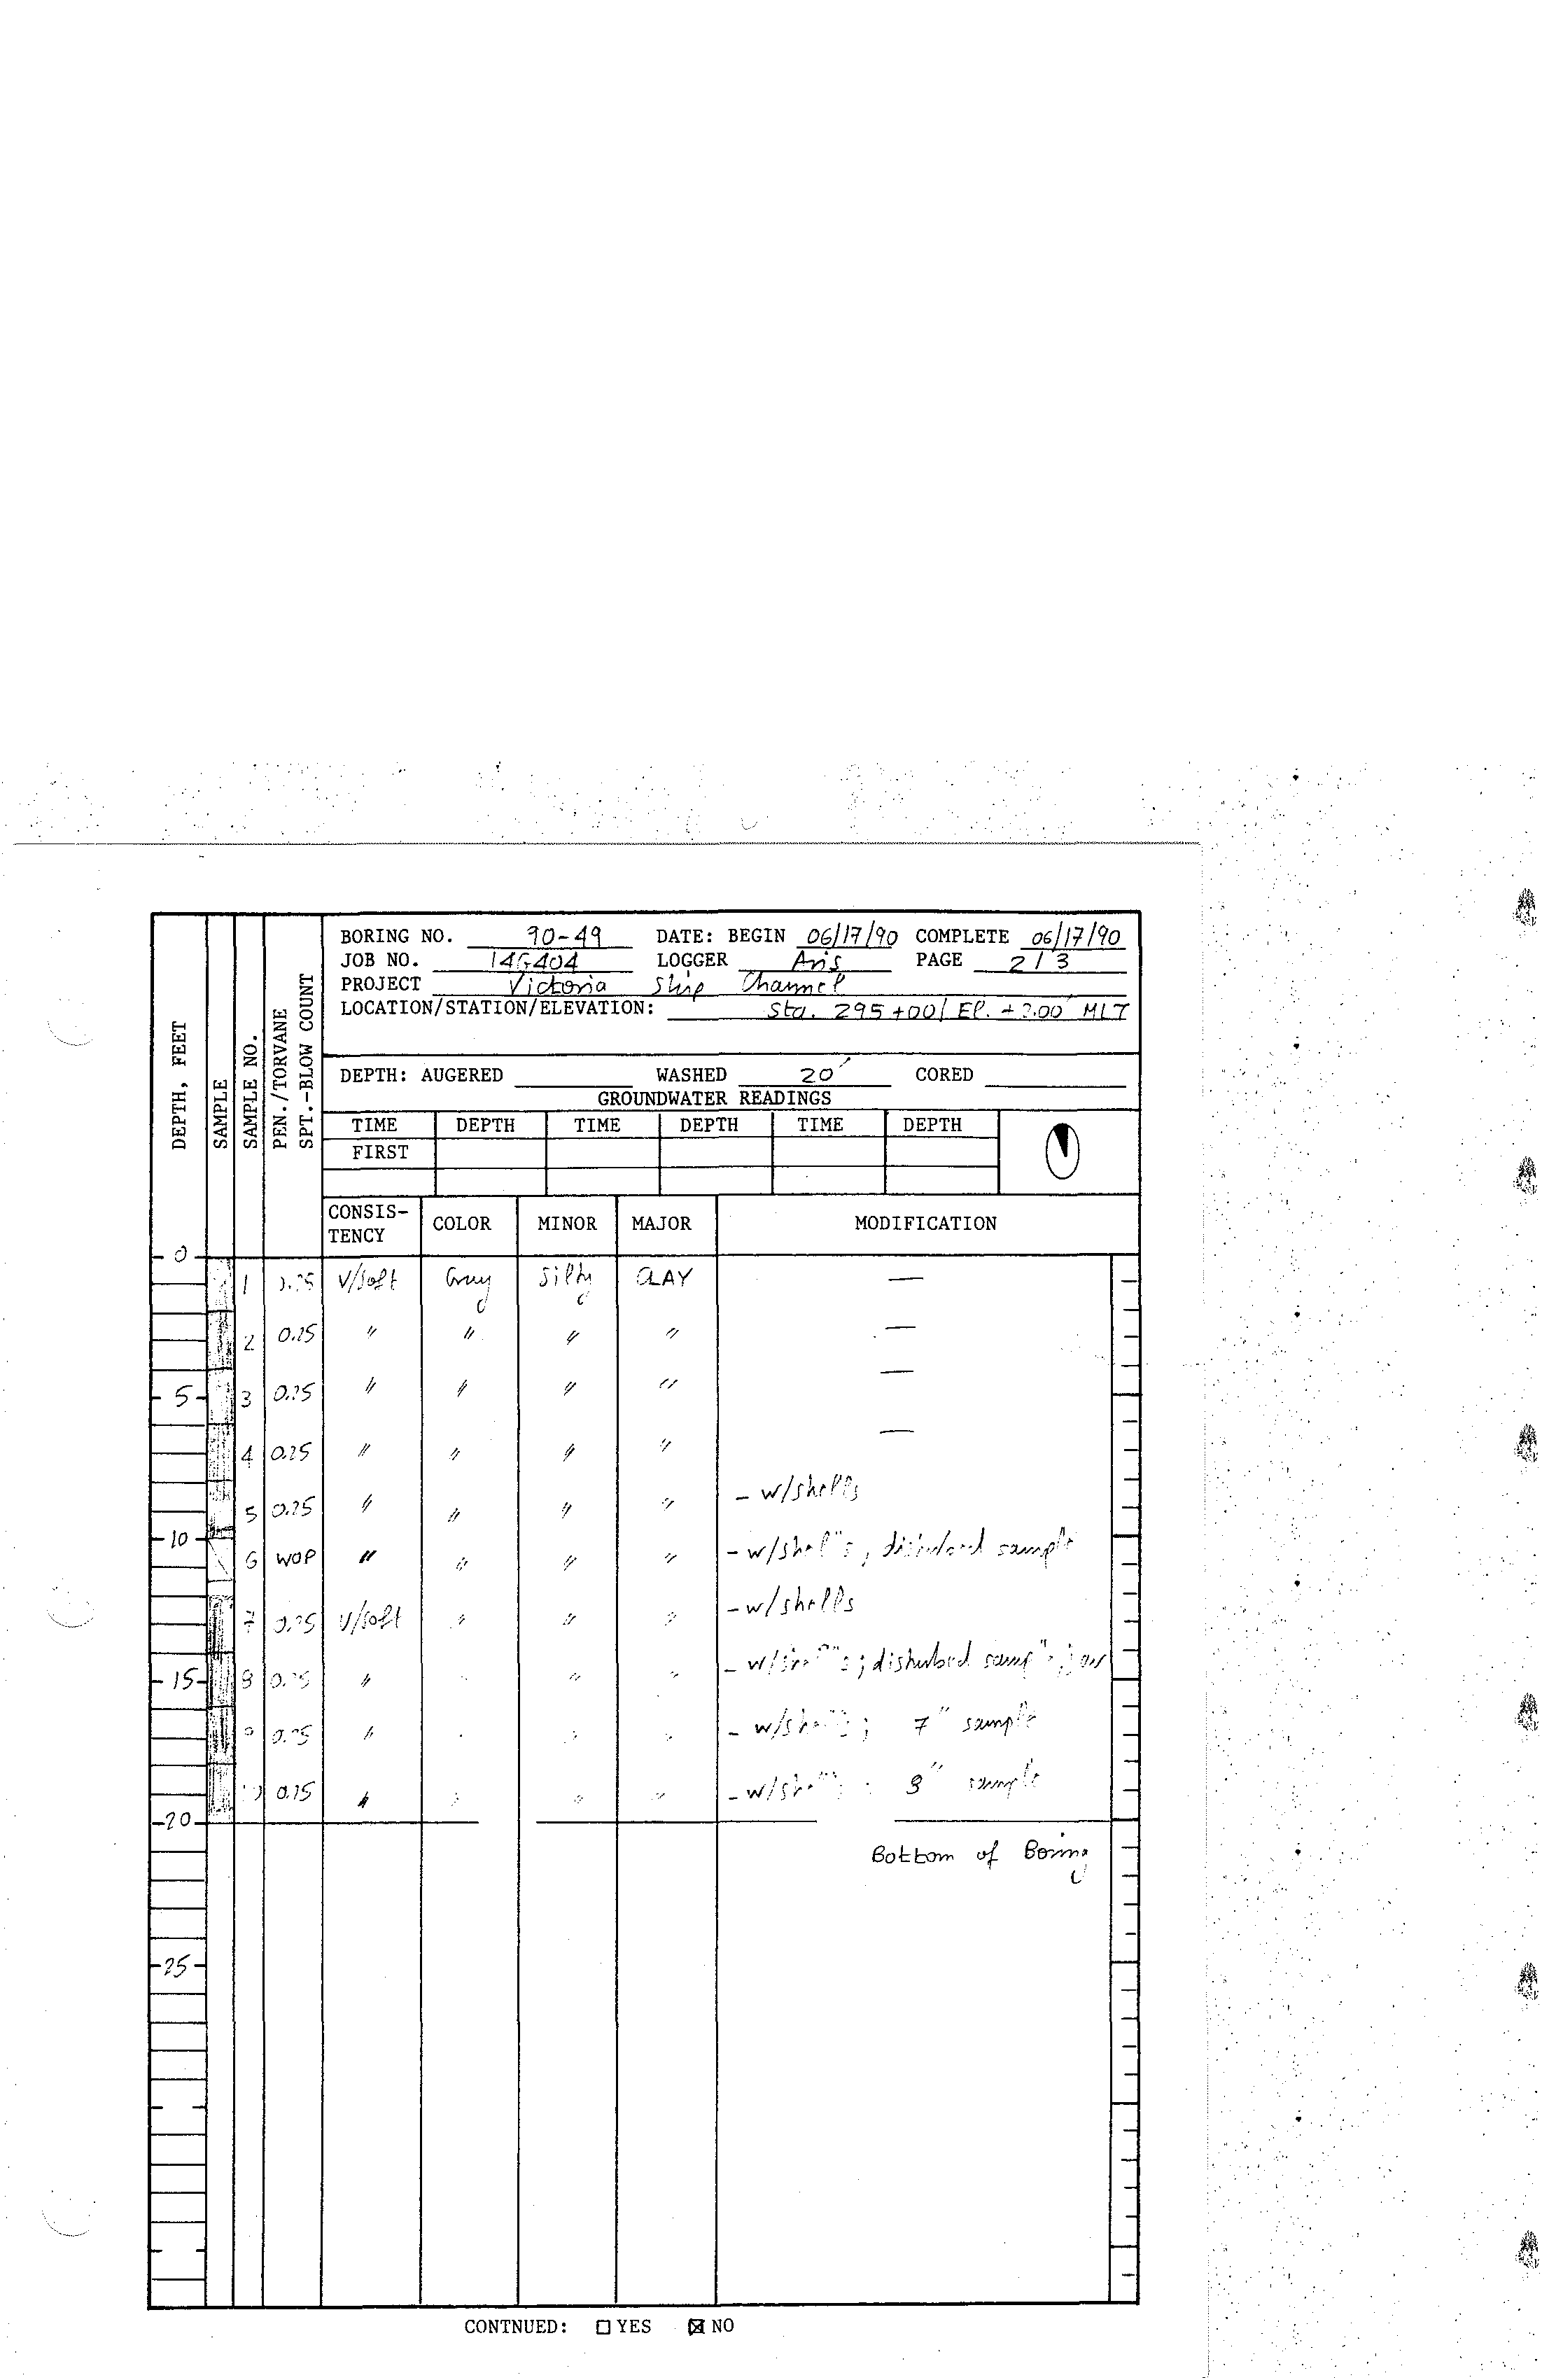 DEPTH, FEET
SAMPLE
SAMPLE NO.
PEN./TORVANE
SPT.-BLOW COUNT
BORING NO. 90-49 DATE: BEGIN 06/17/90 COMPLETE 06/17/90
JOB NO. LOGGER Aris PAGE 2/3
PROJECT Victoria Ship Channel
LOCATION/STATION/ELEVATION: Sta. 295+00/ El. MLT
DEPTH: AUGERED WASHED 20' CORED
GROUNDWATER READINGS
TIME DEPTH TIME DEPTH TIME DEPTH
FIRST
CONSIS-
TENCY COLOR MINOR MAJOR MODIFICATION
0
1 V/Soft Gray Silty CLAY —
2 0.25 " " " " —
5 3 0.25 " " " " —
4 0.25 " " " " —
5 0.25 " " " " - w/shells
10
6 WOP " " " " - w/shells, disturbed sample
7 0.25 V/Soft " " " - w/shells
15 8 0.25 " " " - disturbed
9 0.25 " - w/shells; 7" sample
0.25 " " " - w/shells; 8" sample
20
Bottom of Boring
25
CONTNUED: ☐ YES ☒ NO